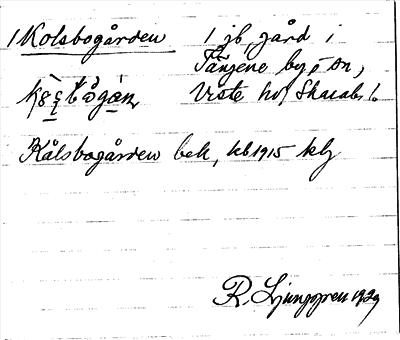 1 Kolsbogården 1 jb, gård i
Tånjene by, ön,
Viste hd, Skarabs l.
Kålsbogården bek, kb 1915 klj
R. Ljunggren 1929